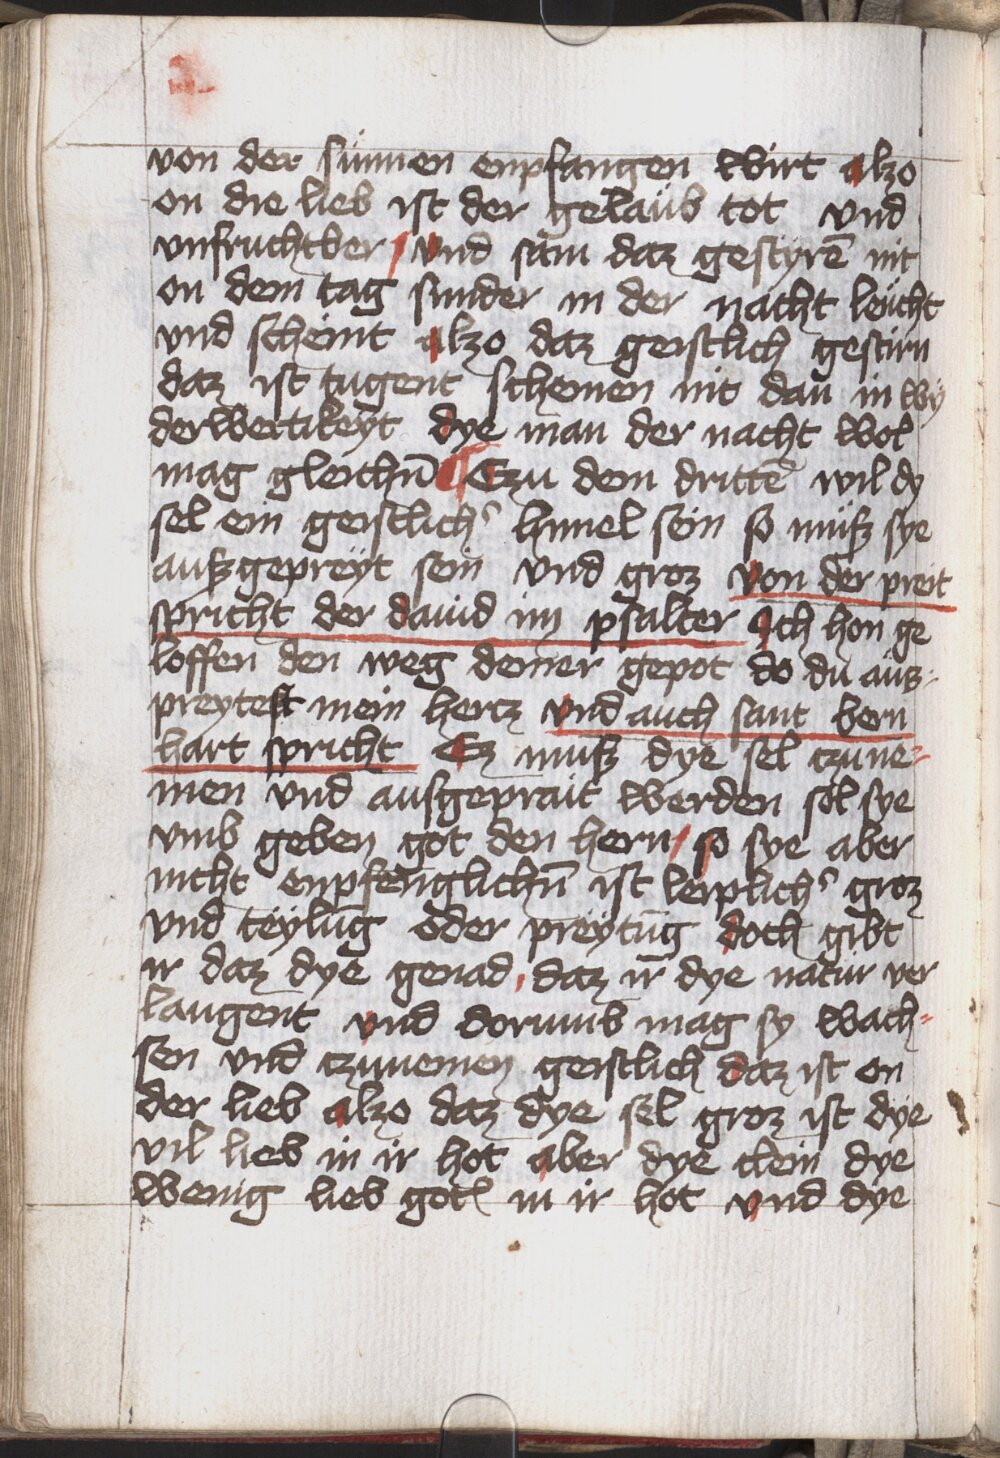 von der sunnen enpfangen wirt alzo
on die lieb ist der gelaub tot vnd
vnfruchtber / vnd sam daz gestyrē nit
on dem tag sunder in der nacht leücht
vnd scheint alzo daz geistlich gestirn
daz ist tugent scheinen nit dan in wÿ
derwertikeyt dye man der nacht wol
mag gleichn̄ ¶ Czu dem drittē wil dy
sel ein geistlichˀ himel sein so muß sye
außgepreÿt sein vnd groz von der preit
spricht der dauid im psalter Ich hon ge
loffen den weg deiner gepot do du auß-
preytest mein hertz vnd auch sant bern
hart spricht Ez muß dye sel czune-
men vnd außgeprait werden sol sye
vmb geben got den hern / so sye aber
nicht enpfenglichn̄ ist leiplichˀ groz
vnd teÿlūg oder preÿtūg doch gibt
ir daz dye genad, daz ir dye natur ver
laugent vnd dorumb mag sy wach-
sen vnd czunemen geistlich daz ist on
der lieb alzo daz dye sel groz ist dye
vil lieb in ir hot aber dye clein dye
wenig lieb gotz in ir hot vnd dye